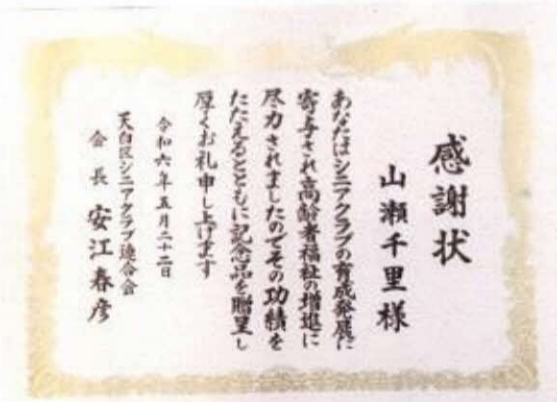 感謝状
山瀬千里様
あなたはシニアクラブの育成発展に
寄与され高齢者福祉の増進に
尽力されましたのでその功績を
たたえるとともに記念品を贈呈し
厚くお礼申し上げます
令和六年五月二十二日
天白区シニアクラブ連合会
会長 安江春彦